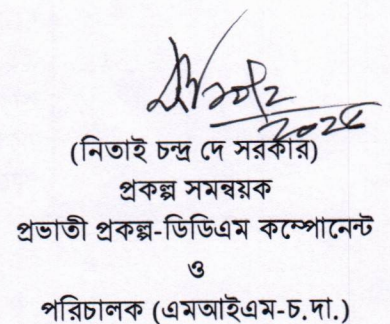 (নিতাই চন্দ্র দে সরকার)
প্রকল্প সমন্বয়ক
প্রভাতী প্রকল্প-ডিডিএম কম্পোনেন্ট
ও
পরিচালক (এমআইএম-চ.দা.)